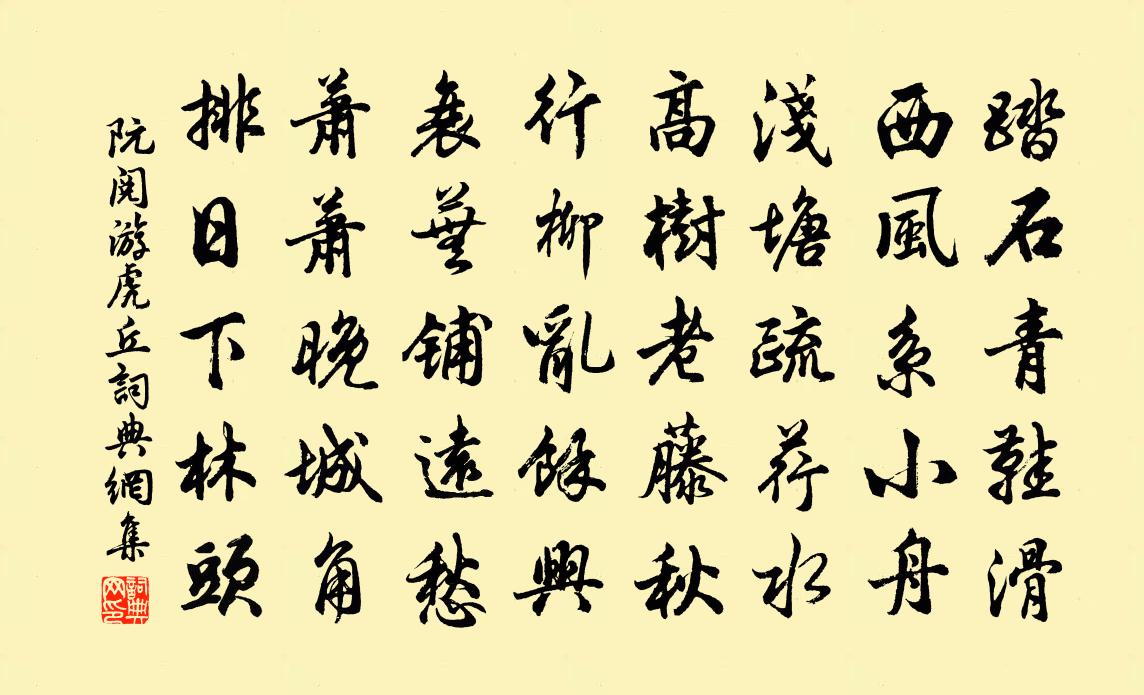 踏石青鞋滑
西風系小舟
淺塘疏荇水
高樹老藤秋
行柳亂餘興
衰蕪鋪遠愁
蕭蕭晚城角
排日下林頭
阮閱游虎丘詞典網集
詞典
网印